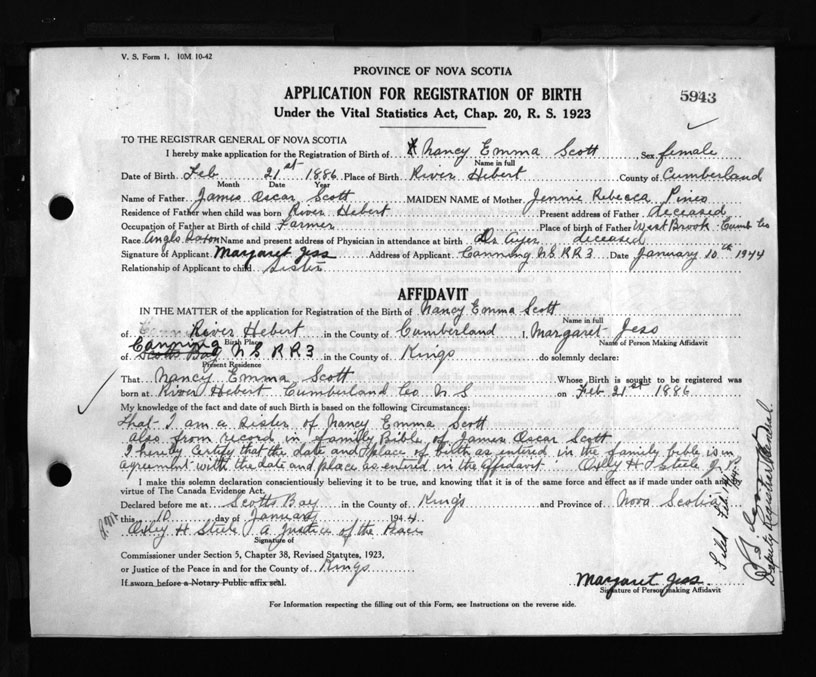 V. S. Form 1. 10M 10-42
PROVINCE OF NOVA SCOTIA
APPLICATION FOR REGISTRATION OF BIRTH
5943
Under the Vital Statistics Act, Chap. 20, R. S. 1923
TO THE REGISTRAR GENERAL OF NOVA SCOTIA
I hereby make application for the Registration of Birth of Nancy Emma Scott, Sex female
Name in full
Date of Birth Feb 21st 1886 Place of Birth River Hebert County of Cumberland
Month Date Year
Name of Father James Oscar Scott MAIDEN NAME of Mother Jennie Rebecca Pines
Residence of Father when child was born River Hebert Present address of Father deceased
Occupation of Father at Birth of child Farmer Place of birth of Father West Brook Cumb Co
Race Anglo Saxon Name and present address of Physician in attendance at birth Dr Ayer deceased
Signature of Applicant Margaret Jess Address of Applicant Canning N S R R 3 Date January 10th 1944
Relationship of Applicant to child Sister
AFFIDAVIT
IN THE MATTER of the application for Registration of the Birth of Nancy Emma Scott
Name in full
of River Hebert in the County of Cumberland I, Margaret Jess
Birth Place Name of Person Making Affidavit
Canning
of Scotts Bay N S R R 3 in the County of Kings do solemnly declare:
Present Residence
That Nancy Emma Scott Whose Birth is sought to be registered was
born at River Hebert Cumberland Co N S on Feb 21st 1886
My knowledge of the fact and date of such Birth is based on the following Circumstances:
That I am a sister of Nancy Emma Scott
also from record in family Bible of James Oscar Scott
I hereby certify that the date and place of birth as entered in the family bible is in
agreement with the date and place as entered in the affidavit. Oxley H Steele J. P.
I make this solemn declaration conscientiously believing it to be true, and knowing that it is of the same force and effect as if made under oath and
virtue of The Canada Evidence Act.
Declared before me at Scotts Bay in the County of Kings and Province of Nova Scotia
this 10 day of January 1944
Oxley H Steele a Justice of the Peace
Signature of
Commissioner under Section 5, Chapter 38, Revised Statutes, 1923,
or Justice of the Peace in and for the County of Kings
If sworn before a Notary Public affix seal.
Margaret Jess
Signature of Person making Affidavit
For Information respecting the filling out of this Form, see Instructions on the reverse side.
Filed Feb
Deputy Registrar General.